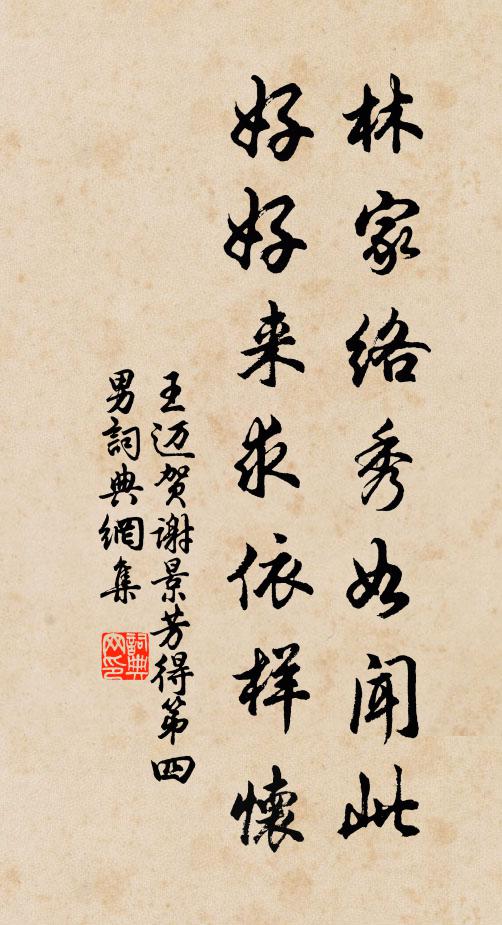 林家络秀如闻此
好好来求依样懷
王迈贺谢景芳得第四
男詞典網集
詞典网印